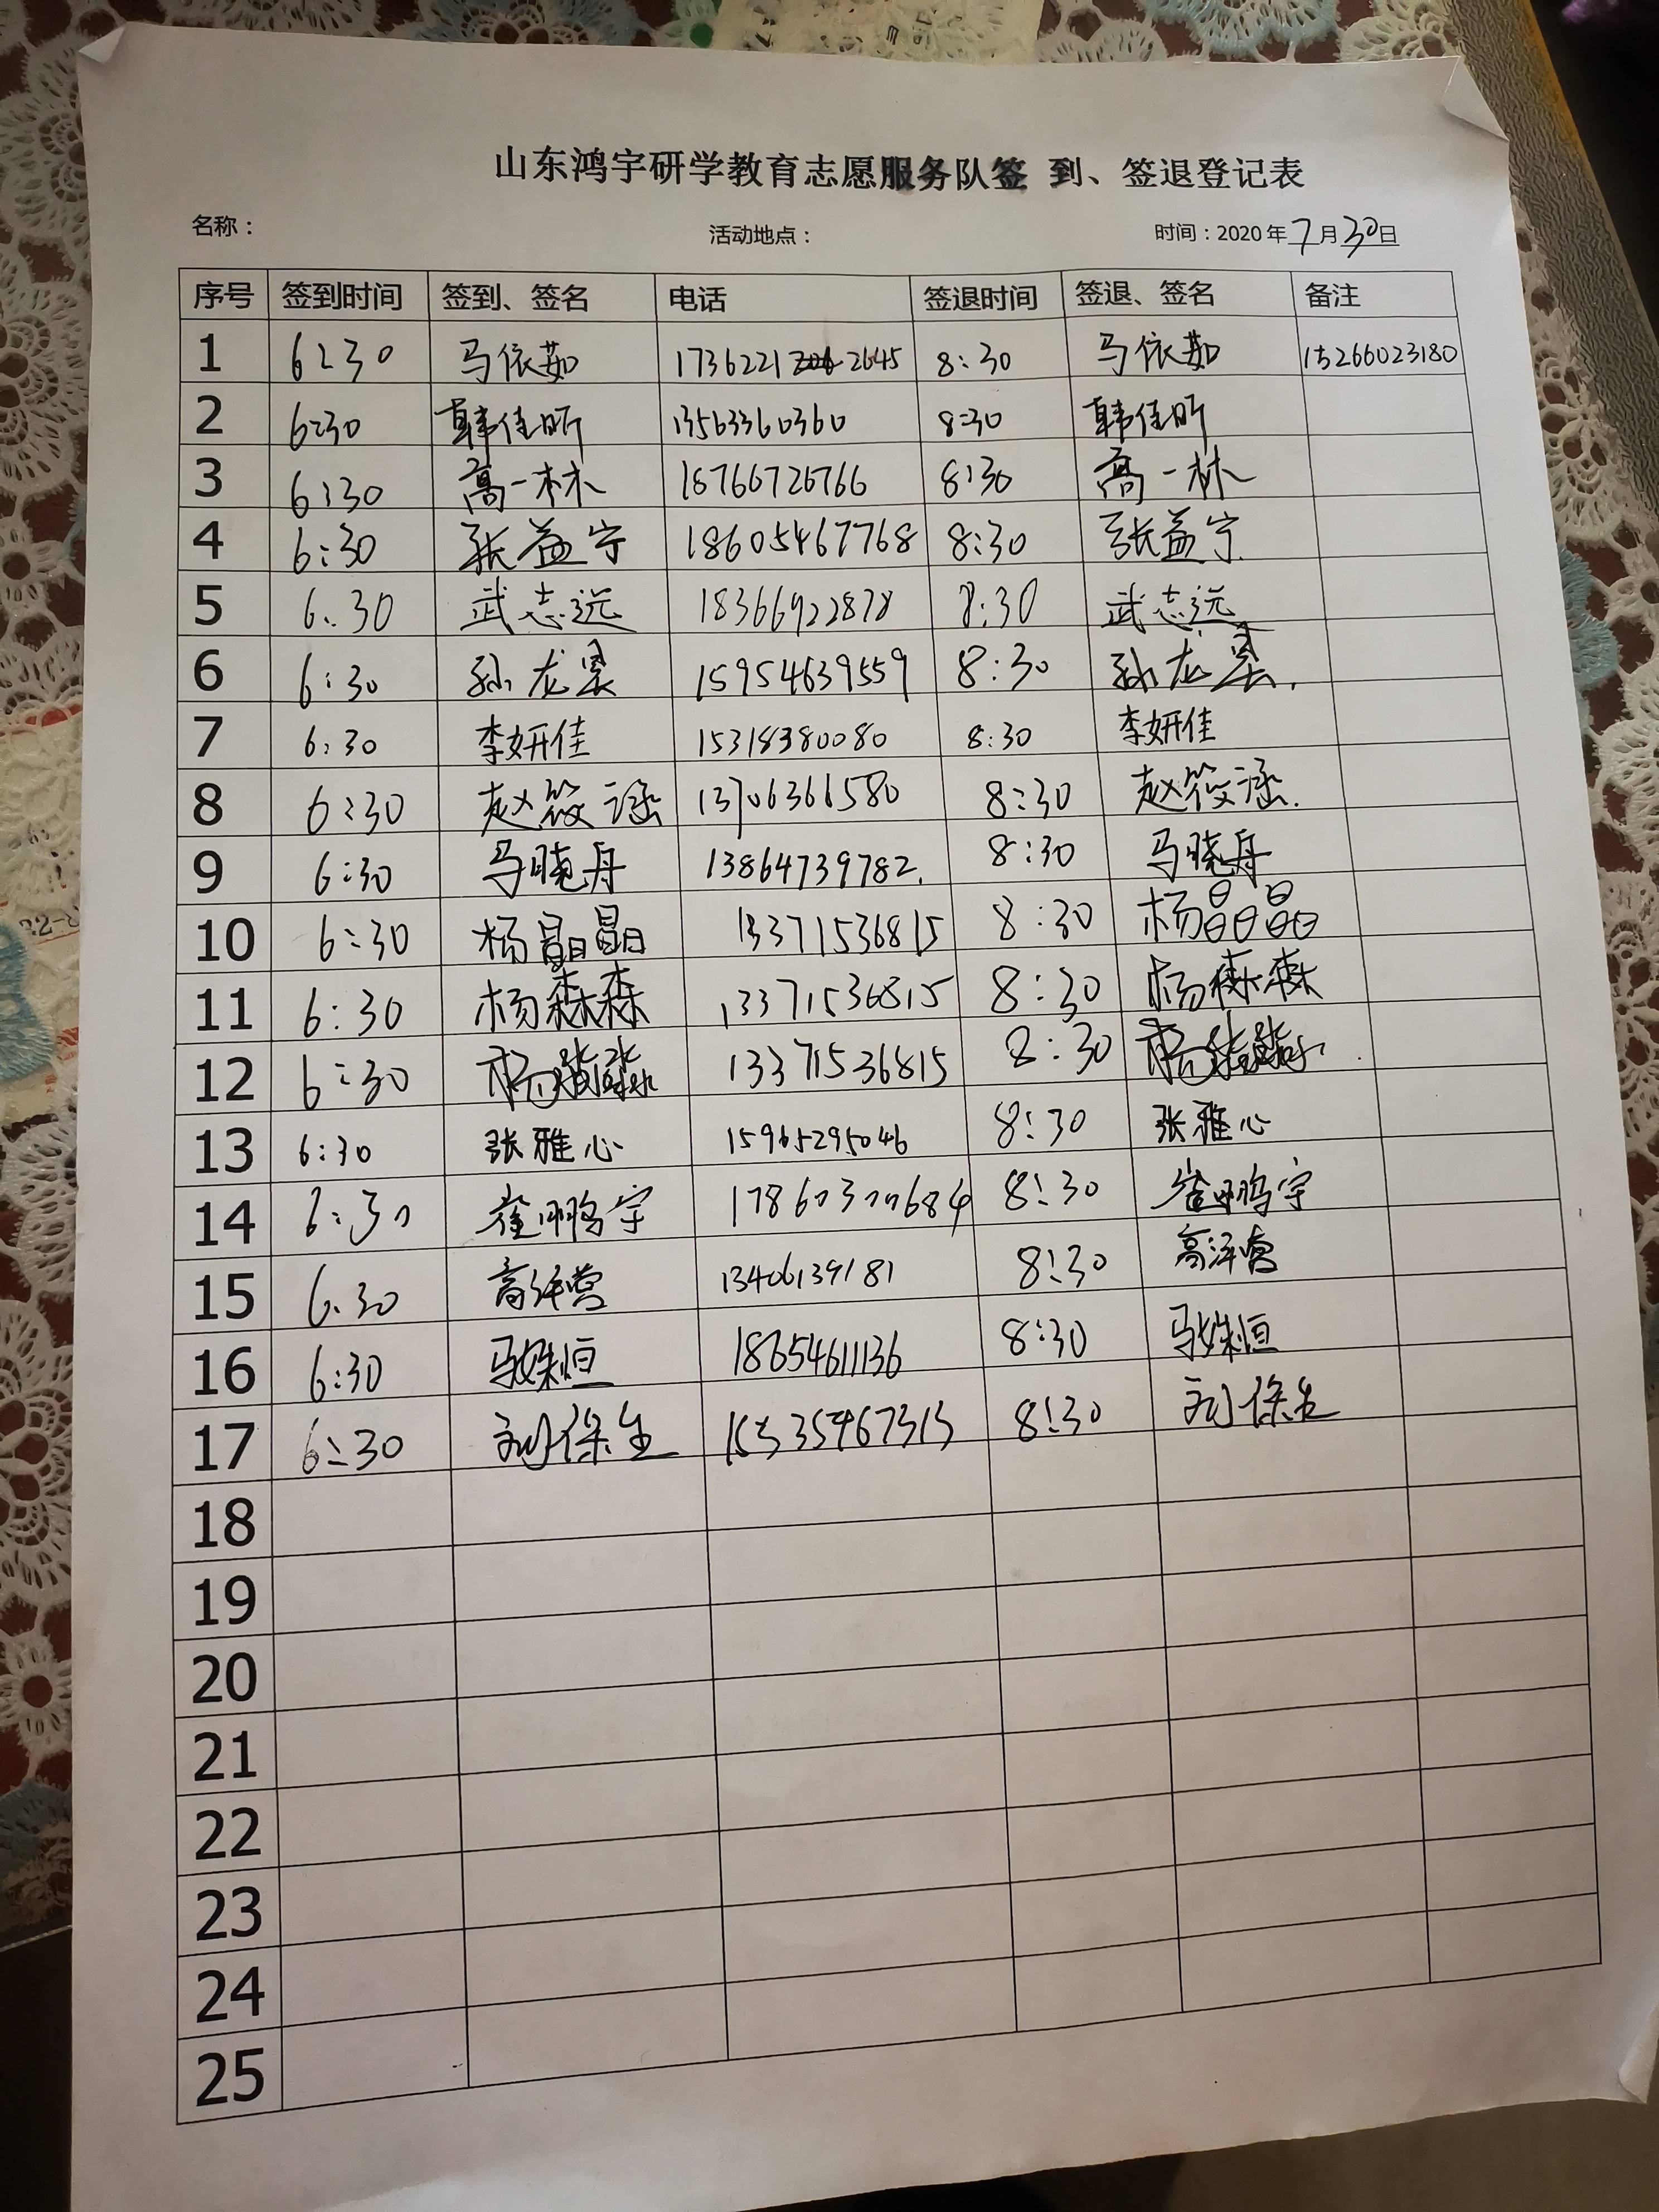 山东鸿宇研学教育志愿服务队签 到、签退登记表
名称： 活动地点： 时间：2020年7月30日
序号 签到时间 签到、签名 电话 签退时间 签退、签名 备注
1 6:30 马依茹 17362212645 8:30 马依茹 15266023180
2 6:30 韩佳昕 13563360360 8:30 韩佳昕
3 6:30 高一林 18766726766 8:30 高一林
4 6:30 张益宁 18605467768 8:30 张益宁
5 6:30 武志远 18366922878 8:30 武志远
6 6:30 孙龙昊 15954639559 8:30 孙龙昊
7 6:30 李妍佳 15318380080 8:30 李妍佳
8 6:30 赵筱涵 13706366580 8:30 赵筱涵
9 6:30 马晓丹 13864739782 8:30 马晓丹
10 6:30 杨晶晶 13371536815 8:30 杨晶晶
11 6:30 杨森森 13371536815 8:30 杨森森
12 6:30 杨淼淼 13371536815 8:30 杨淼淼
13 6:30 张雅心 15965295046 8:30 张雅心
14 6:30 崔鹏宇 17860300684 8:30 崔鹏宇
15 6:30 高泽营 13406139181 8:30 高泽营
16 6:30 马姝恒 18654611136 8:30 马姝恒
17 6:30 刘保生 15335467313 8:30 刘保生
18
19
20
21
22
23
24
25